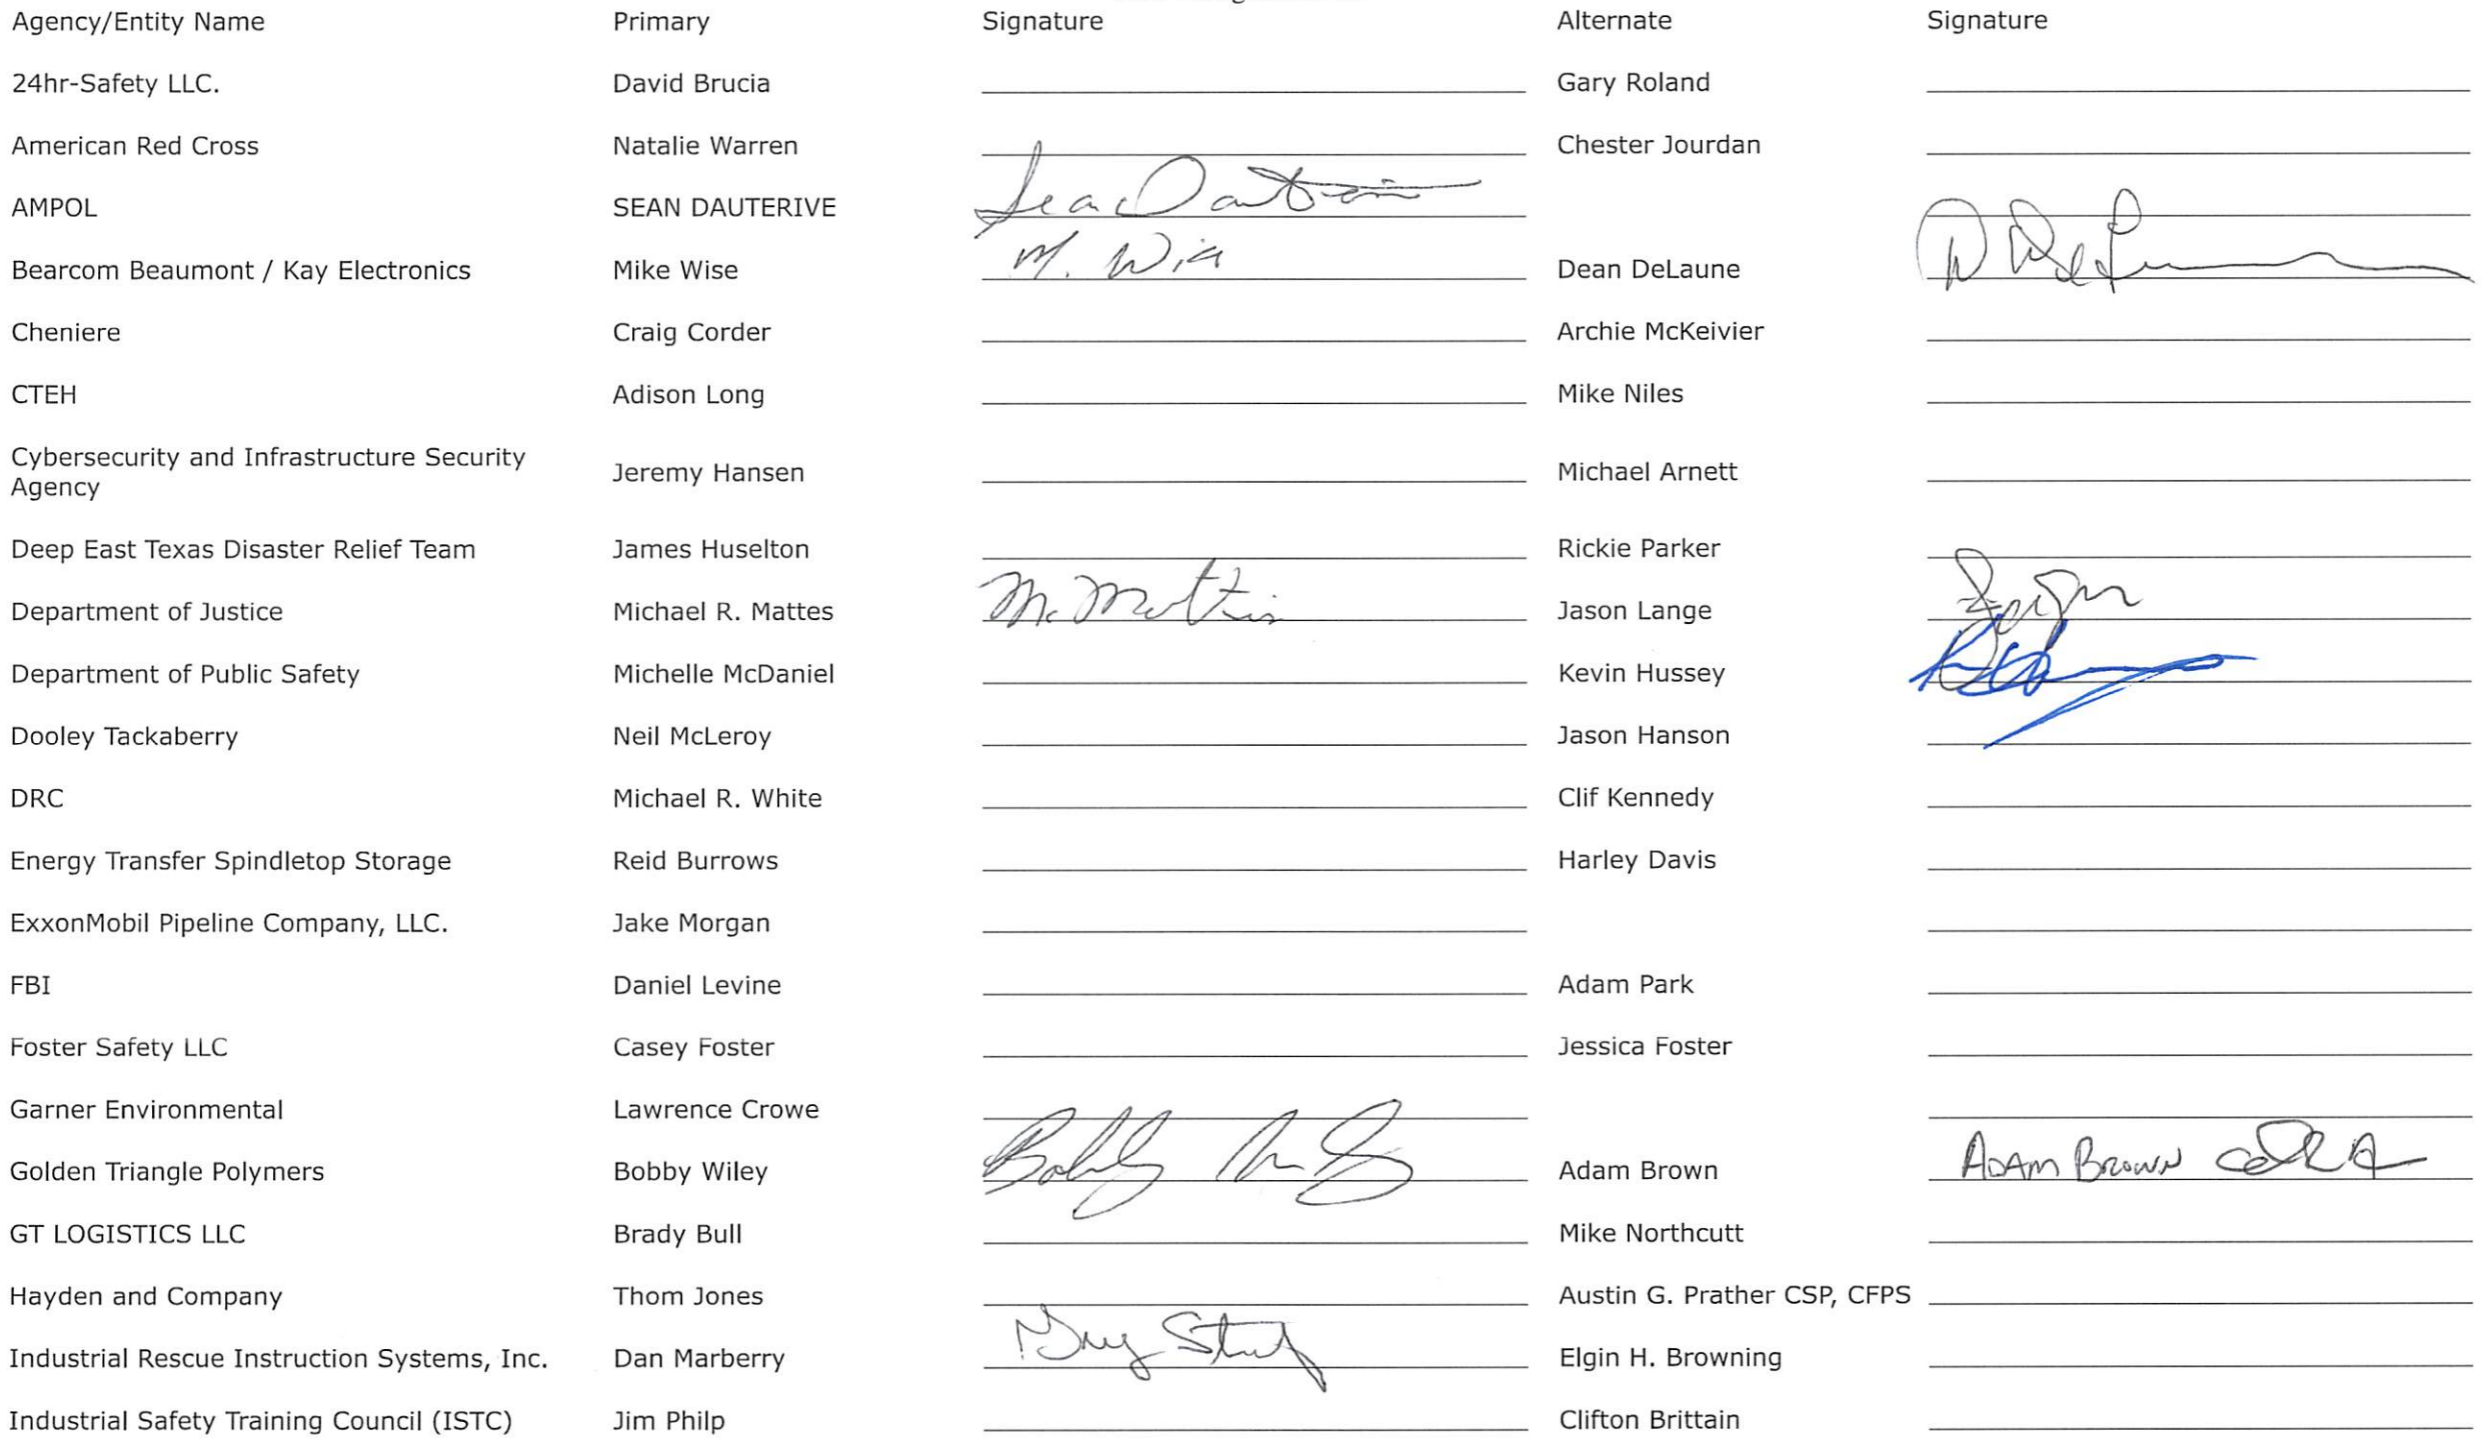 Agency/Entity Name Primary Signature Alternate Signature
24hr-Safety LLC. David Brucia Gary Roland
American Red Cross Natalie Warren Chester Jourdan
AMPOL SEAN DAUTERIVE Sean Dauterive
Bearcom Beaumont / Kay Electronics Mike Wise M. Wise Dean DeLaune
Cheniere Craig Corder Archie McKeivier
CTEH Adison Long Mike Niles
Cybersecurity and Infrastructure Security
Agency Jeremy Hansen Michael Arnett
Deep East Texas Disaster Relief Team James Huselton Rickie Parker
Department of Justice Michael R. Mattes Jason Lange
Department of Public Safety Michelle McDaniel Kevin Hussey
Dooley Tackaberry Neil McLeroy Jason Hanson
DRC Michael R. White Clif Kennedy
Energy Transfer Spindletop Storage Reid Burrows Harley Davis
ExxonMobil Pipeline Company, LLC. Jake Morgan
FBI Daniel Levine Adam Park
Foster Safety LLC Casey Foster Jessica Foster
Garner Environmental Lawrence Crowe
Golden Triangle Polymers Bobby Wiley Bobby Adam Brown ADAM BROWN
GT LOGISTICS LLC Brady Bull Mike Northcutt
Hayden and Company Thom Jones Austin G. Prather CSP, CFPS
Industrial Rescue Instruction Systems, Inc. Dan Marberry Elgin H. Browning
Industrial Safety Training Council (ISTC) Jim Philp Clifton Brittain